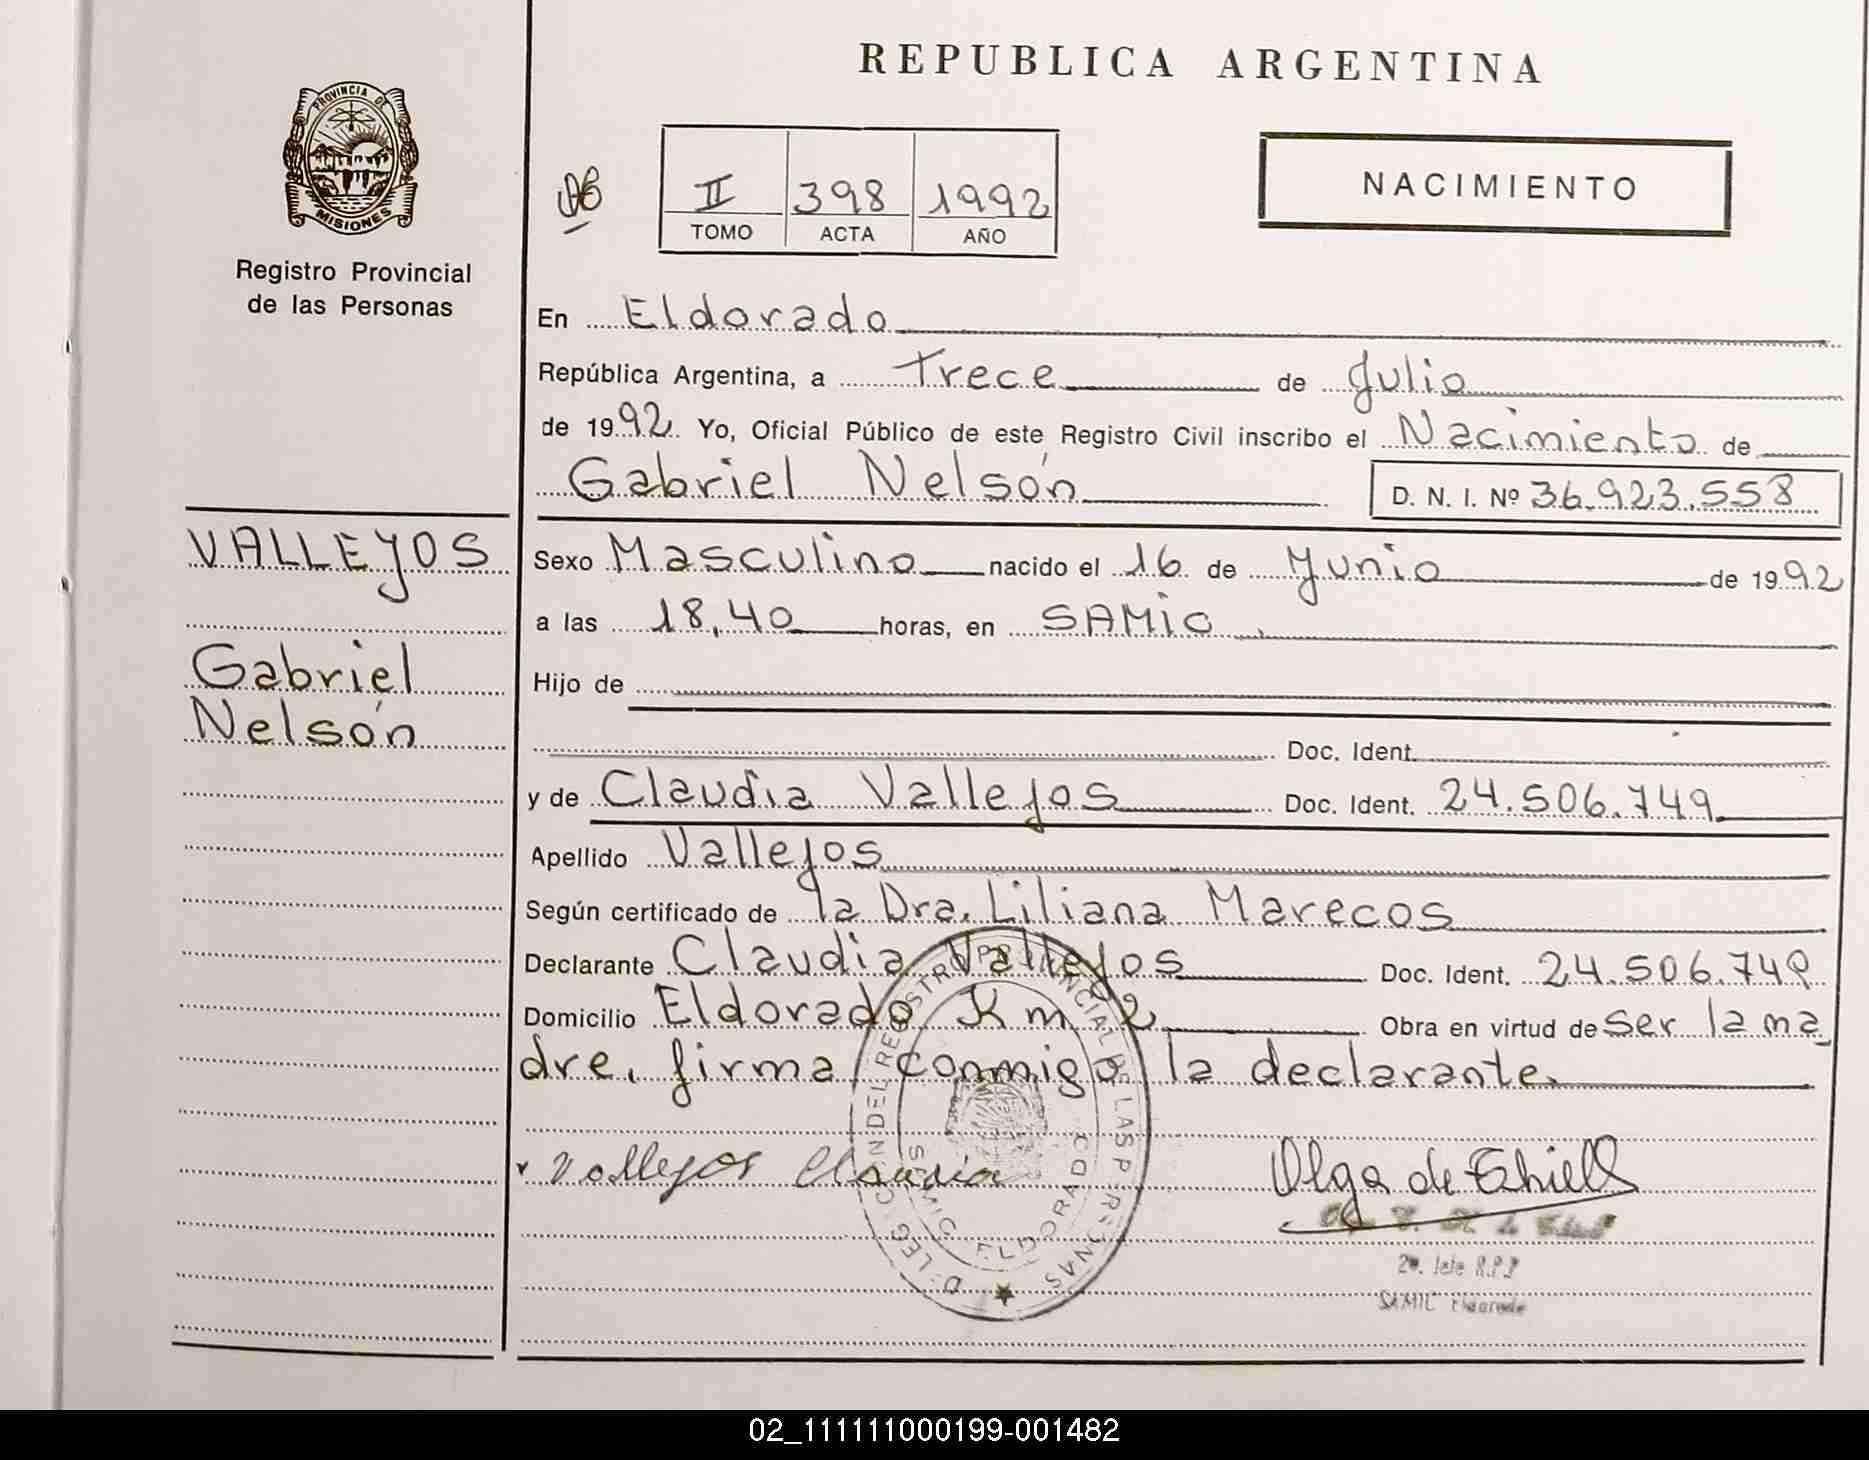 REPUBLICA ARGENTINA
PROVINCIA DE
MISIONES
Registro Provincial
de las Personas
II 398 1992
TOMO ACTA AÑO
NACIMIENTO
En Eldorado
República Argentina, a Trece de Julio
de 1992 Yo, Oficial Público de este Registro Civil inscribo el Nacimiento de
Gabriel Nelsón D. N. I. Nº 36.923.558
VALLEJOS
Gabriel
Nelsón
Sexo Masculino nacido el 16 de Junio de 1992
a las 18,40 horas, en SAMIC
Hijo de
Doc. Ident.
y de Claudia Vallejos Doc. Ident. 24.506.749
Apellido Vallejos
Según certificado de la Dra. Liliana Marecos
Declarante Claudia Vallejos Doc. Ident. 24.506.749
Domicilio Eldorado Km 2 Obra en virtud de ser la ma
dre, firma conmigo la declarante.
Vallejos Claudia
Olga de
DELEGACION DEL REGISTRO PROVINCIAL DE LAS PERSONAS
SAMIC ELDORADO
SAMIC Eldorado
02_111111000199-001482